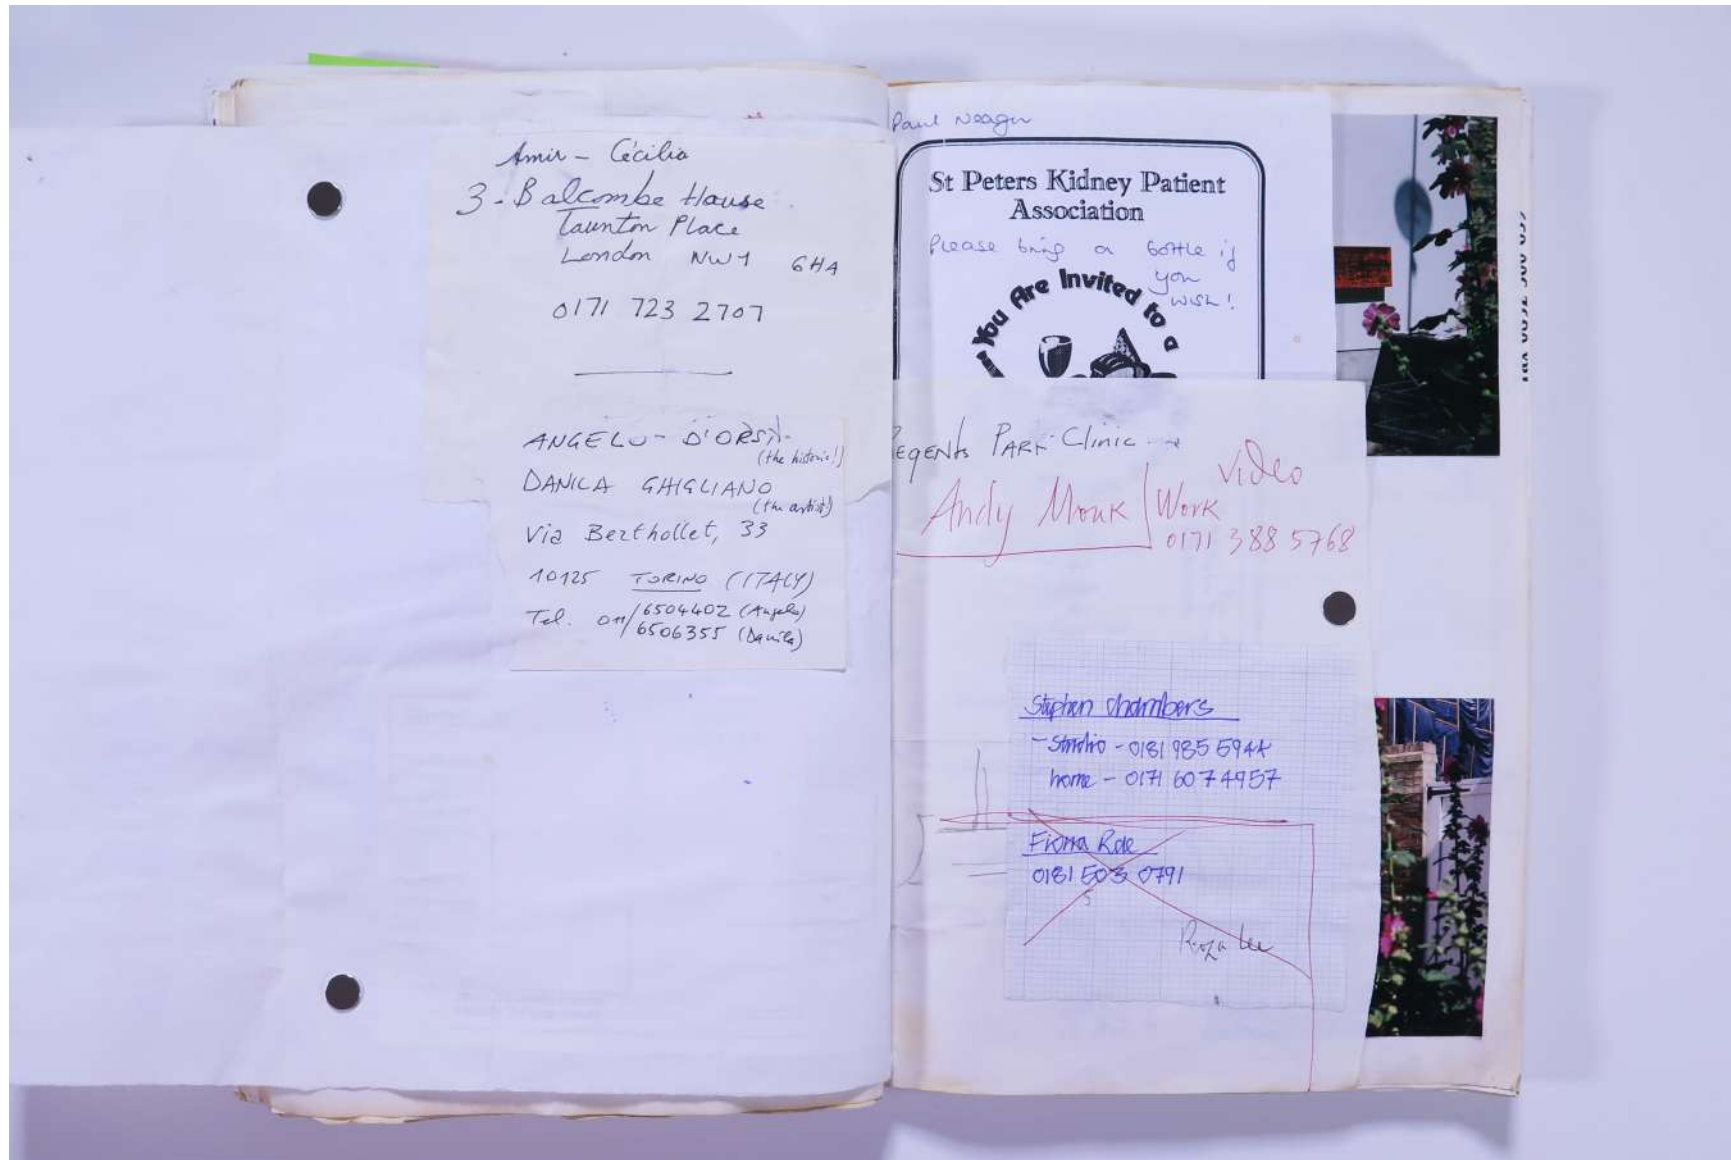 Amir - Cécilia
3 - Balcombe House
Taunton Place
London NW1 6HA
0171 723 2707
ANGELO - D'ORSI -
(the historic!)
DANILA GHIGLIANO
(the artist)
Via Berthollet, 33
10125 TORINO (ITALY)
Tel. 011/6504402 (Angelo)
6506355 (Danila)
Paul Neagu
St Peters Kidney Patient
Association
Please bring a bottle if
you
wish!
You Are Invited to a
Regents Park Clinic
Video
Andy Monk Work
0171 388 5768
Stephen Chambers
- Studio - 0181 985 5944
home - 0171 607 4957
Fiona Rae
0181 503 0791